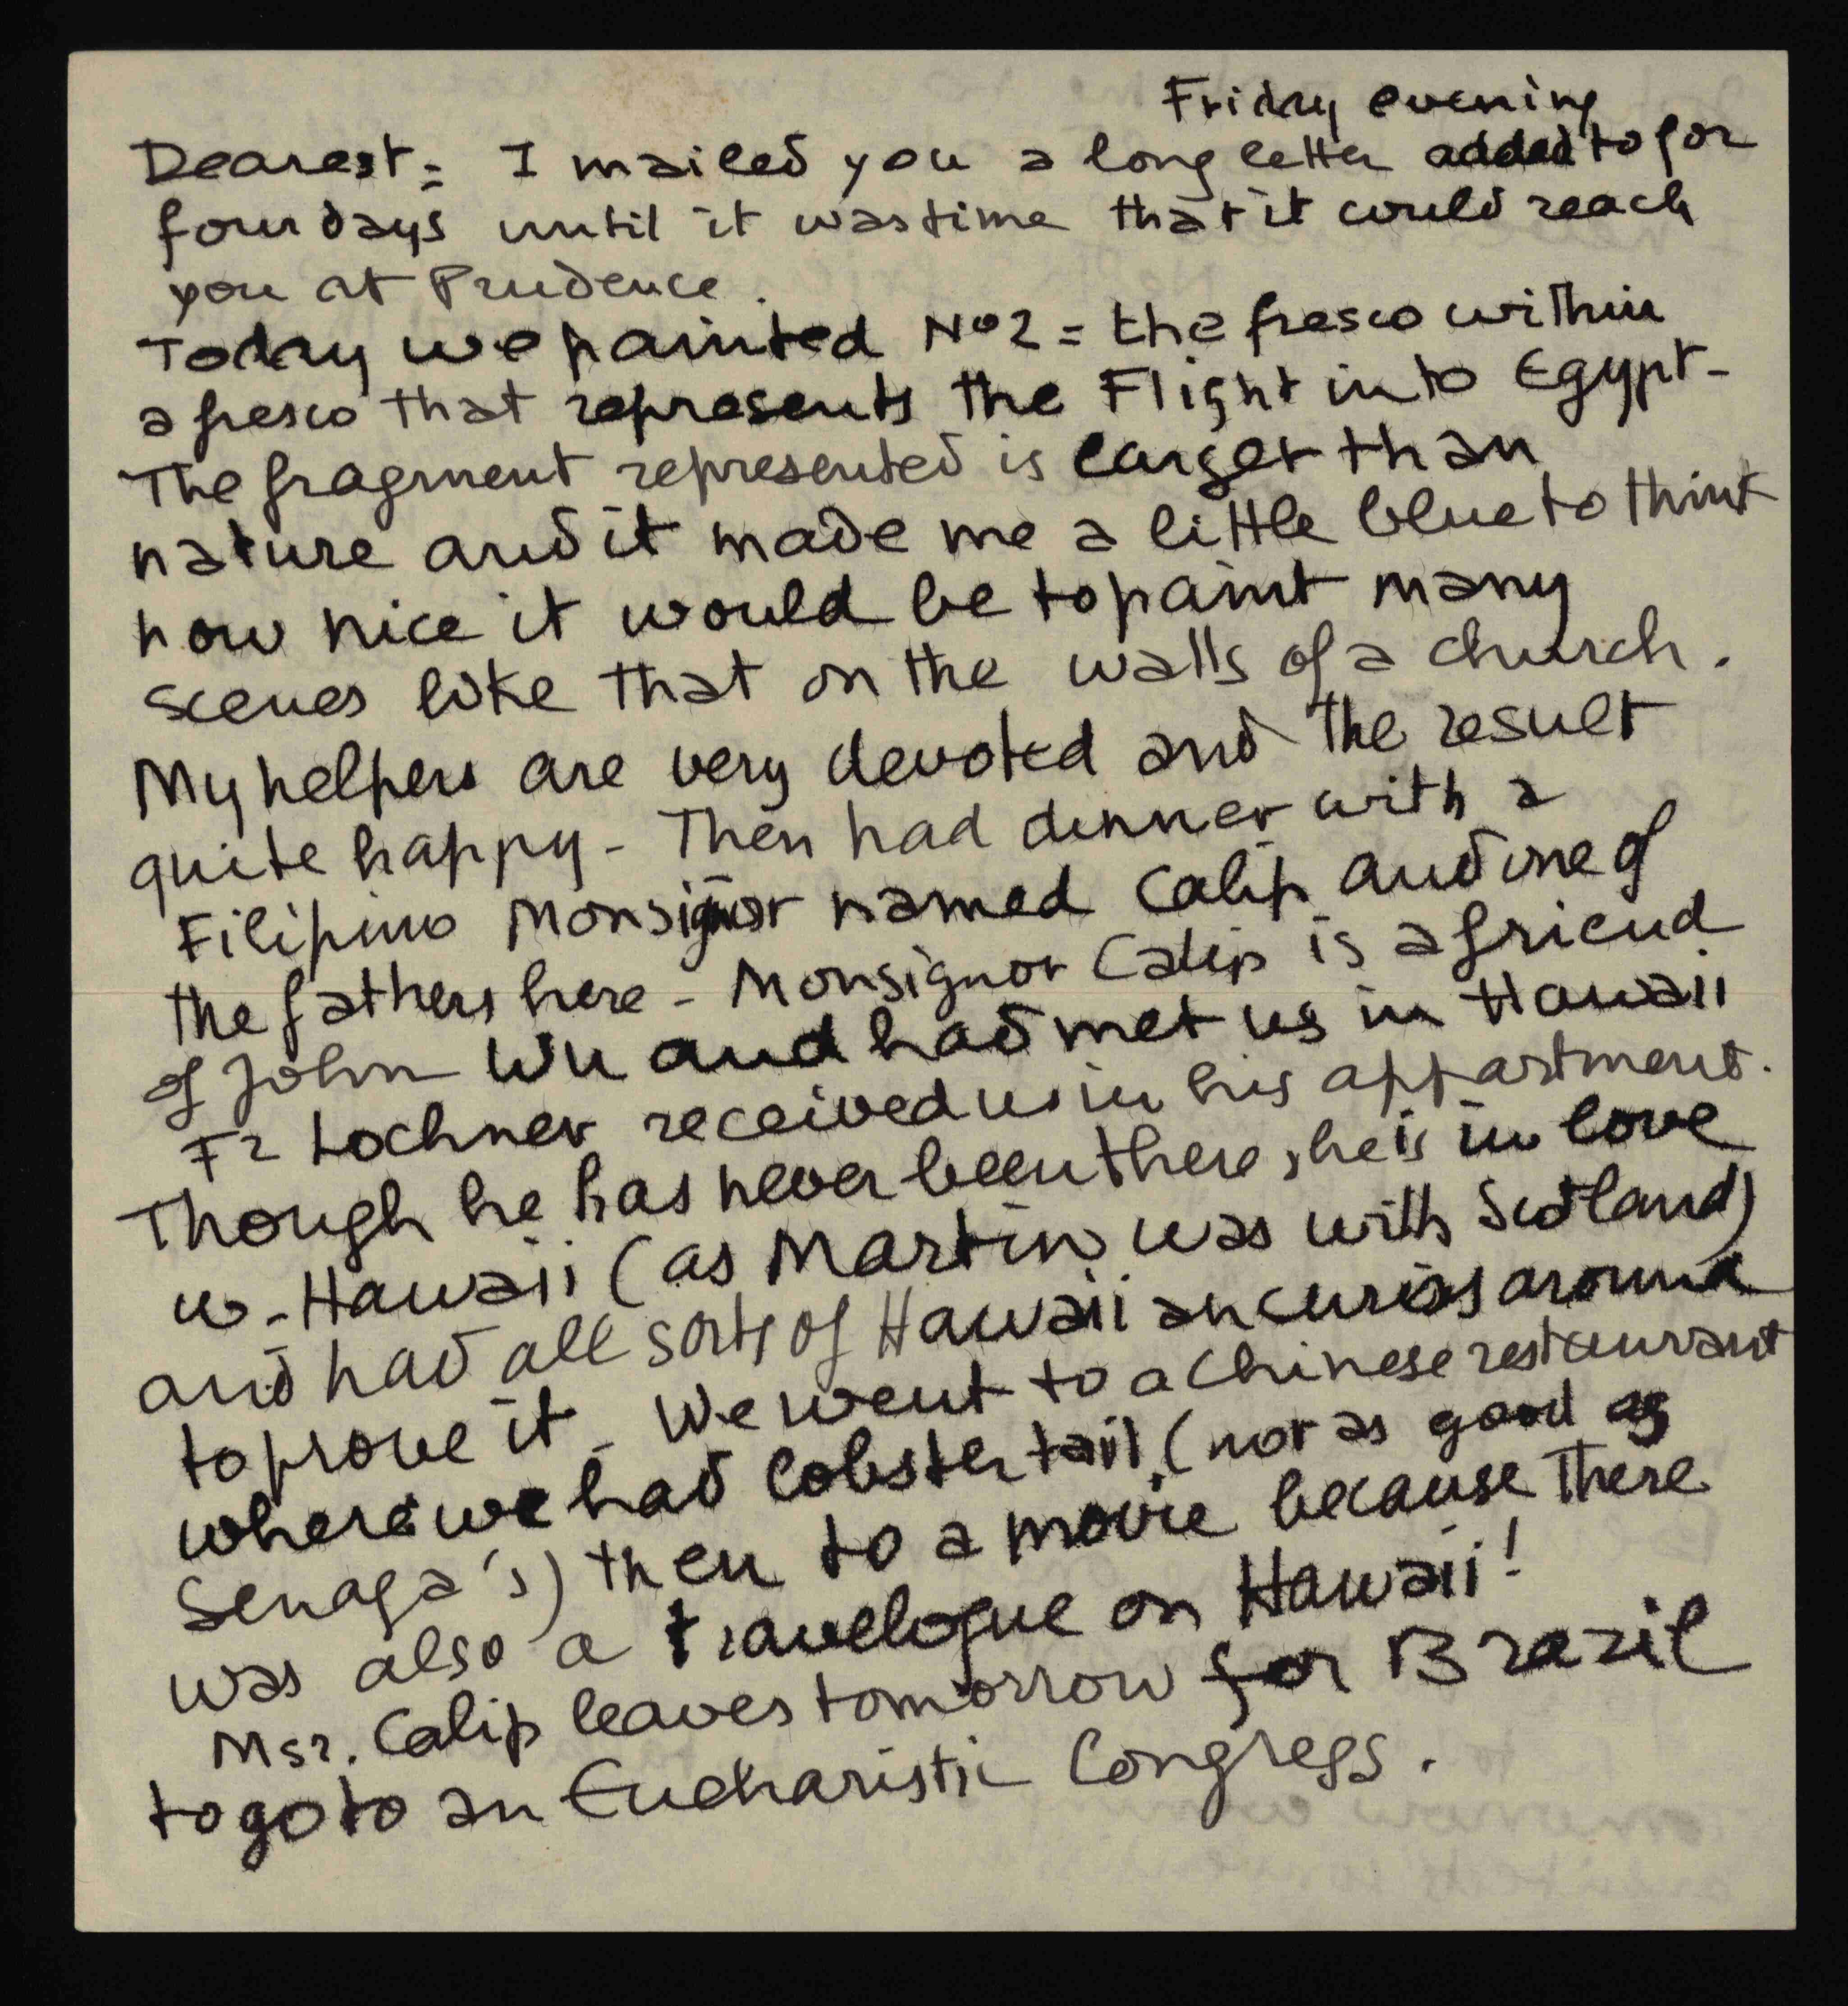 Friday evening
Dearest = I mailed you a long letter added to for
four days until it was time that it could reach
you at Prudence.
Today we painted No 2 = the fresco within
a fresco that represents the Flight into Egypt -
The fragment represented is larger than
nature and it made me a little blue to think
how nice it would be to paint many
scenes like that on the walls of a church.
My helpers are very devoted and the result
quite happy - Then had dinner with a
Filipino Monsignor named Calip and one of
the fathers here - Monsignor Calip is a friend
of John Wu and had met us in Hawaii
Fr Lochner received us in his appartment.
Though he has never been there, he is in love
w. Hawaii (as Martin was with Scotland)
and had all sorts of Hawaiian curios around
to prove it - We went to a Chinese restaurant
where we had lobster tail, (not as good as
Senaga's) then to a movie because there
was also a travelogue on Hawaii!
Msr. Calip leaves tomorrow for Brazil
to go to an Eucharistic Congress.